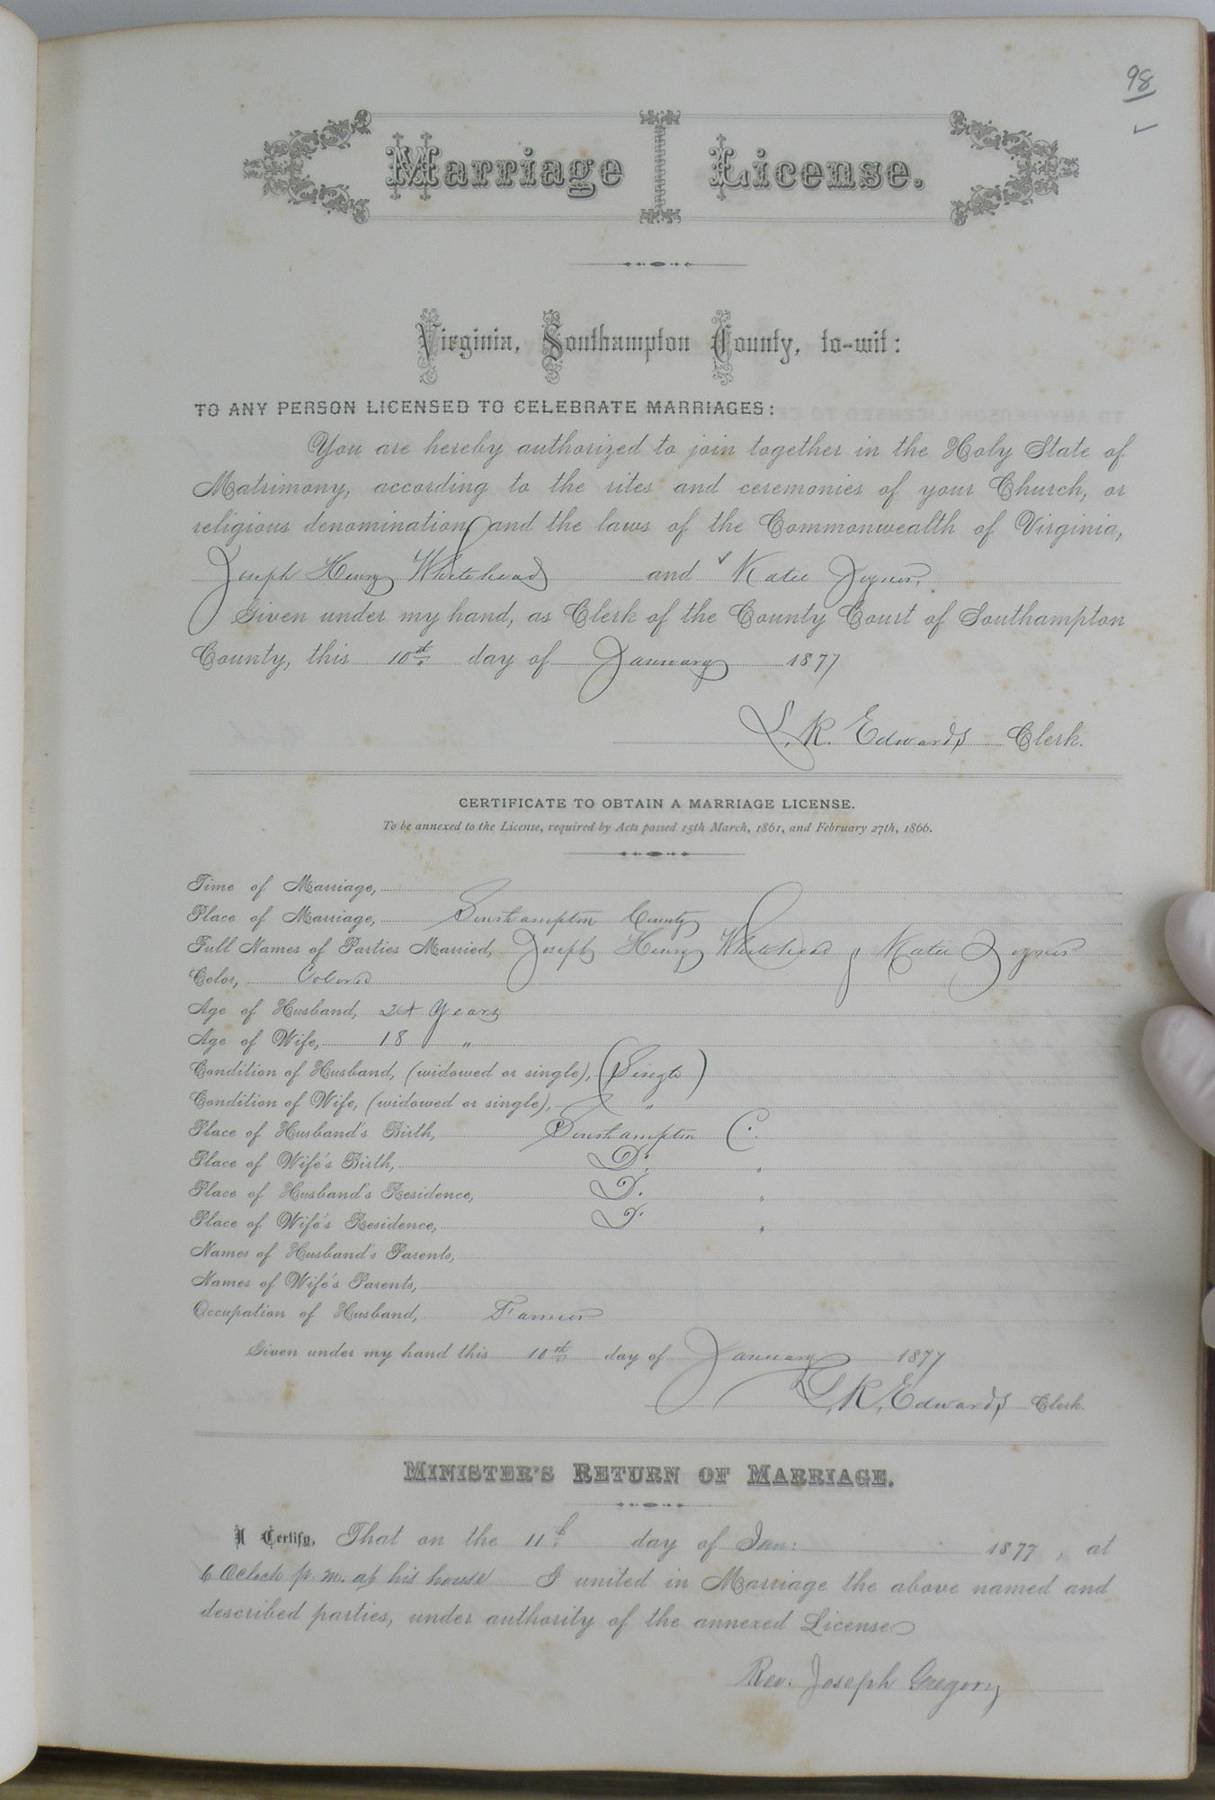 98
Marriage License.
Virginia, Southampton County, to-wit:
TO ANY PERSON LICENSED TO CELEBRATE MARRIAGES:
You are hereby authorized to join together in the Holy State of
Matrimony, according to the rites and ceremonies of your Church, or
religious denomination, and the laws of the Commonwealth of Virginia,
Joseph Henry Whitehead and Katie Joyner.
Given under my hand, as Clerk of the County Court of Southampton
County, this 10th day of January 1877
L. R. Edwards Clerk.
CERTIFICATE TO OBTAIN A MARRIAGE LICENSE.
To be annexed to the License, required by Acts passed 15th March, 1861, and February 27th, 1866.
Time of Marriage,
Place of Marriage, Southampton County
Full Names of Parties Married, Joseph Henry Whitehead & Katie Joyner
Color, Colored
Age of Husband, 24 Years
Age of Wife, 18 "
Condition of Husband, (widowed or single), (Single)
Condition of Wife, (widowed or single), "
Place of Husband's Birth, Southampton C.
Place of Wife's Birth, Do.
Place of Husband's Residence, Do.
Place of Wife's Residence, Do.
Names of Husband's Parents,
Names of Wife's Parents,
Occupation of Husband, Farmer
Given under my hand this 10th day of January 1877
L. R. Edwards Clerk.
MINISTER'S RETURN OF MARRIAGE.
I Certify, That on the 11th day of Jan: 1877, at
6 Oclock p. m. at his house I united in Marriage the above named and
described parties, under authority of the annexed License
Rev. Joseph Gregory